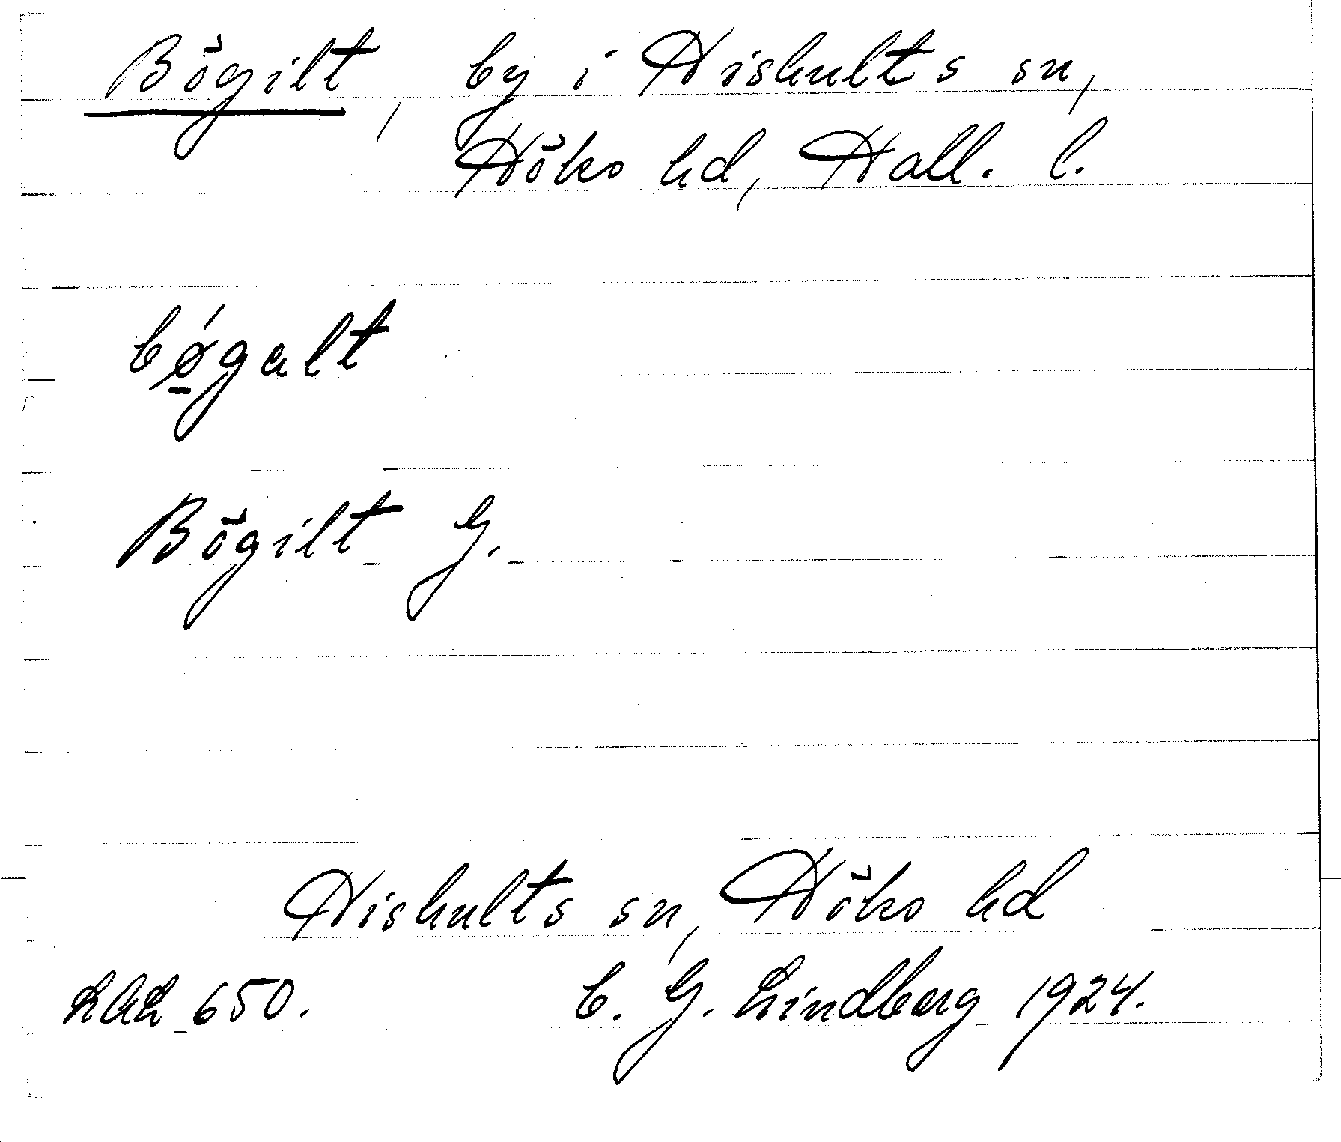 Bögilt, by i Hishults sn,
Höks hd, Hall. l.
bǿ̱galt
Bögilt G.
Hishults sn, Höks hd
LAL 650. C. G. Lindberg 1924.